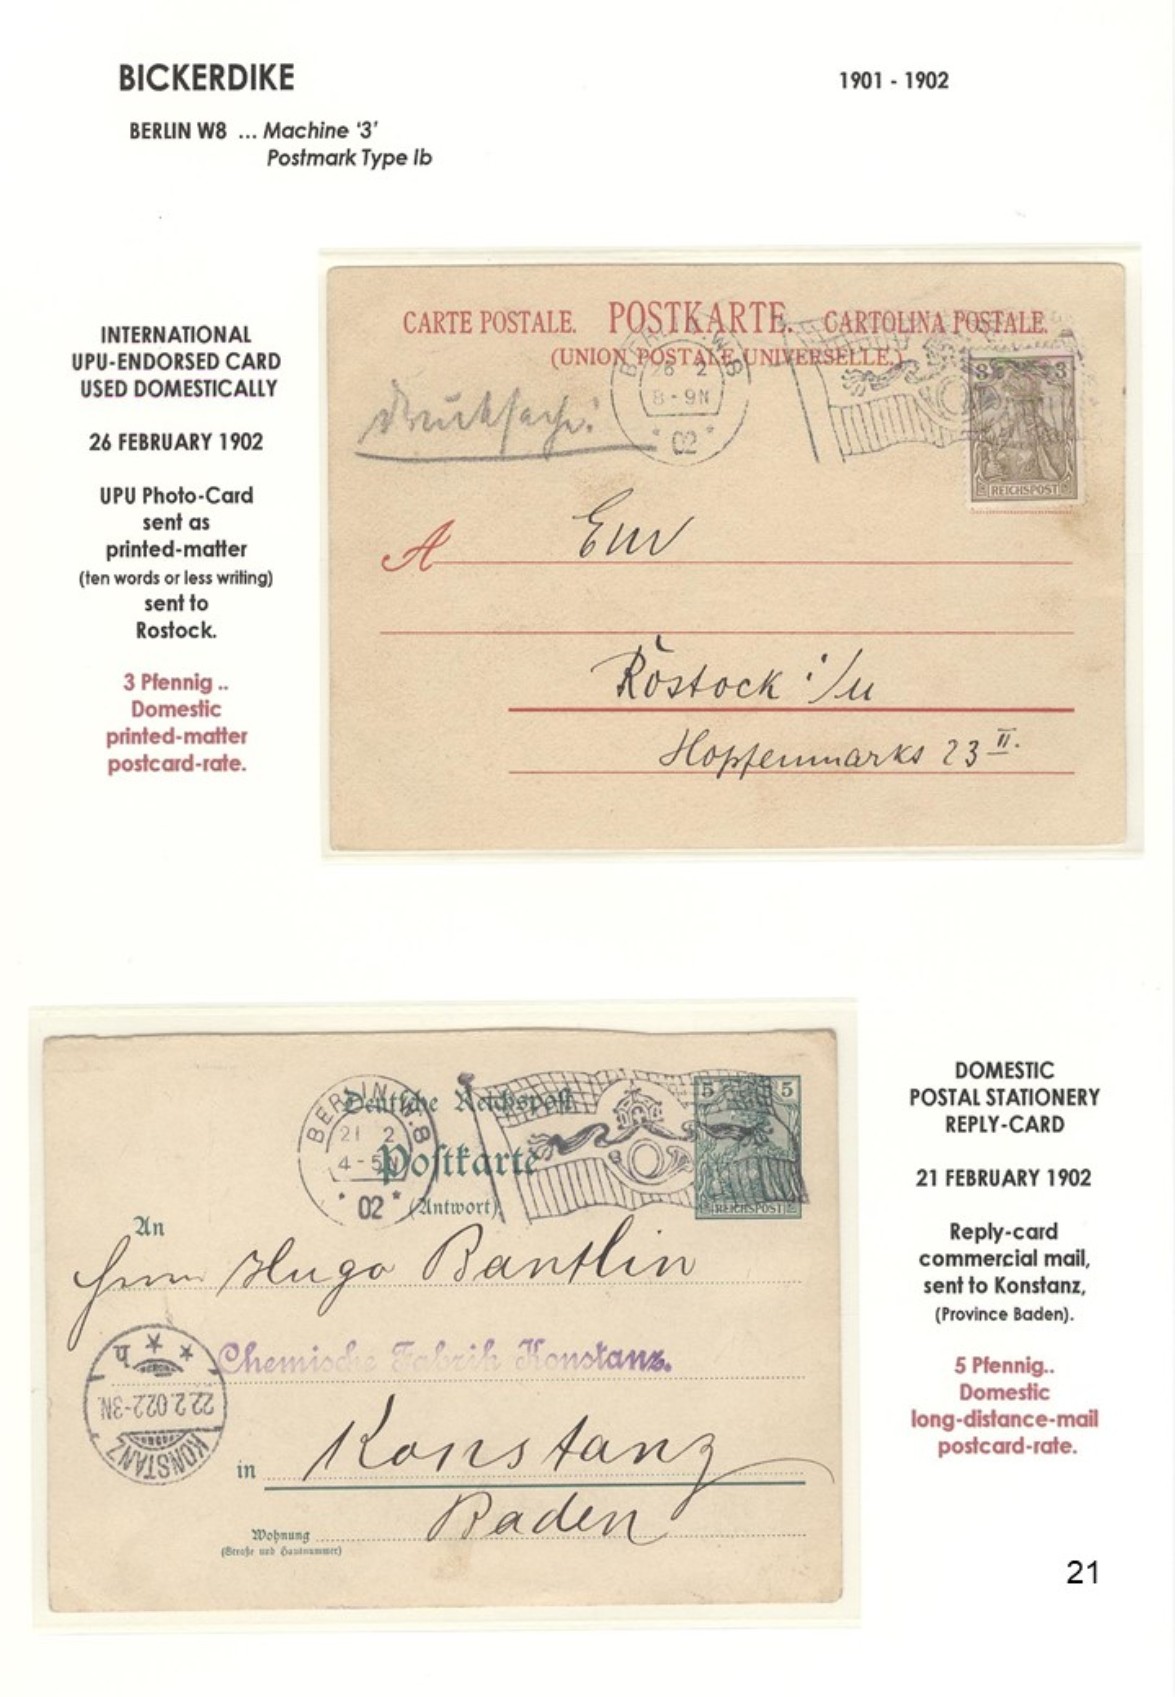 BICKERDIKE
1901 - 1902
BERLIN W8 ... Machine ‘3’
Postmark Type Ib
INTERNATIONAL
UPU-ENDORSED CARD
USED DOMESTICALLY
26 FEBRUARY 1902
UPU Photo-Card
sent as
printed-matter
(ten words or less writing)
sent to
Rostock.
3 Pfennig ..
Domestic
printed-matter
postcard-rate.
CARTE POSTALE. POSTKARTE. CARTOLINA POSTALE.
(UNION POSTALE UNIVERSELLE.)
Drucksache!
BERLIN.W.8
26 2
8-9N
* 02 *
3 3
REICHSPOST
A
Rostock i/M
Hopfenmarkt 23 II.
Deutsche Reichspost
Postkarte
(Antwort)
BERLIN.W.8
21 2
4-5N
* 02 *
5 5
REICHSPOST
An
Herrn Hugo Bantlin
Chemische Fabrik Konstanz.
KONSTANZ
22.2.02.2-3N.
in Konstanz
Baden
Wohnung
(Straße und Hausnummer)
DOMESTIC
POSTAL STATIONERY
REPLY-CARD
21 FEBRUARY 1902
Reply-card
commercial mail,
sent to Konstanz,
(Province Baden).
5 Pfennig..
Domestic
long-distance-mail
postcard-rate.
21